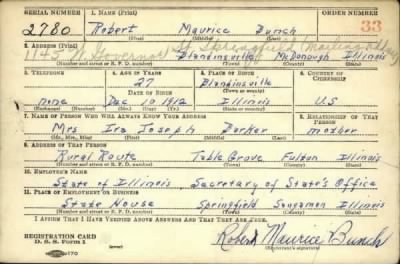 SERIAL NUMBER 1. NAME (Print) ORDER NUMBER
2780 Robert Maurice Bunch 33
(First) (Middle) (Last)
2. ADDRESS (Print)
1145 W Governor St Springfield (Mailing Address)
Blandinsville McDonough Illinois
(Number and street or R. F. D. number) (Town) (County) (State)
3. TELEPHONE 4. AGE IN YEARS 5. PLACE OF BIRTH 6. COUNTRY OF CITIZENSHIP
27 Blandinsville
DATE OF BIRTH (Town or county)
none Dec 10 1912 Illinois U.S
(Exchange) (Number) (Mo.) (Day) (Yr.) (State or country)
7. NAME OF PERSON WHO WILL ALWAYS KNOW YOUR ADDRESS 8. RELATIONSHIP OF THAT PERSON
Mrs Ira Joseph Barker mother
(Mr., Mrs., Miss) (First) (Middle) (Last)
9. ADDRESS OF THAT PERSON
Rural Route Table Grove Fulton Illinois
(Number and street or R. F. D. number) (Town) (County) (State)
10. EMPLOYER'S NAME
State of Illinois, Secretary of State's Office
11. PLACE OF EMPLOYMENT OR BUSINESS
State House Springfield Sangamon Illinois
(Number and street or R. F. D. number) (Town) (County) (State)
I AFFIRM THAT I HAVE VERIFIED ABOVE ANSWERS AND THAT THEY ARE TRUE.
REGISTRATION CARD Robert Maurice Bunch
D. S. S. Form 1 (Registrant's signature)